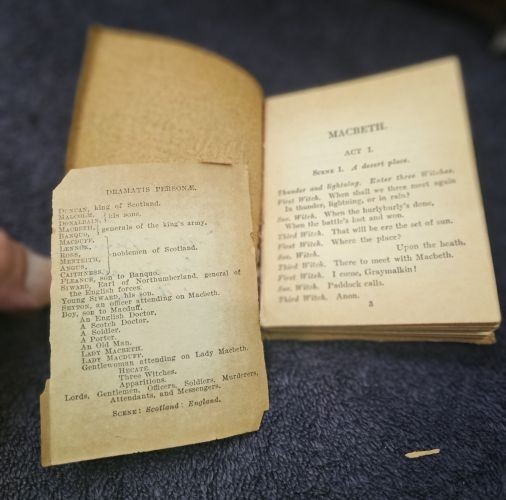 DRAMATIS PERSONÆ.
DUNCAN, king of Scotland.
MALCOLM,
DONALBAIN, } his sons.
MACBETH,
BANQUO, } generals of the king's army,
MACDUFF,
LENNOX,
ROSS,
MENTEITH,
ANGUS,
CAITHNESS, } noblemen of Scotland.
FLEANCE, son to Banquo.
SIWARD, Earl of Northumberland, general of
the English forces.
Young SIWARD, his son.
SEYTON, an officer attending on Macbeth.
Boy, son to Macduff.
An English Doctor,
A Scotch Doctor,
A Soldier.
A Porter.
An Old Man.
LADY MACBETH.
LADY MACDUFF.
Gentlewoman attending on Lady Macbeth.
HECATE.
Three Witches.
Apparitions.
Lords, Gentlemen, Officers, Soldiers, Murderers,
Attendants, and Messengers.
SCENE: Scotland: England.
MACBETH.
ACT I.
SCENE I. A desert place.
Thunder and lightning. Enter three Witches.
First Witch. When shall we three meet again
In thunder, lightning, or in rain?
Sec. Witch. When the hurlyburly's done,
When the battle's lost and won.
Third Witch. That will be ere the set of sun.
First Witch. Where the place?
Sec. Witch. Upon the heath.
Third Witch. There to meet with Macbeth.
First Witch. I come, Graymalkin!
Sec. Witch. Paddock calls.
Third Witch. Anon.
3